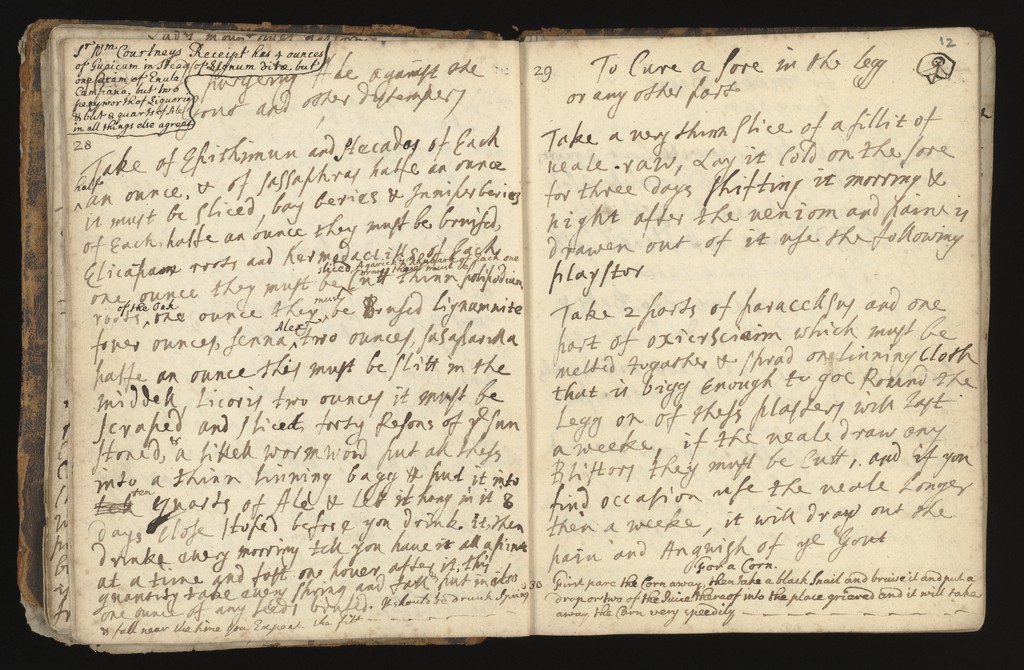 Sr Wm Courtneys Receipt has 4 ounces
of Guaicum in stead of Lignum Vitæ, but
one of Enula
Campana, but two
penyworth of Liquorish
& but 8 quarts of Ale
in all things else agrees
purgeing Ale against the
and other distempers
28
Take of Epithimun and Stecados of Each
half
an ounce, & of Sassaphras halfe an ounce
it must be sliced, bay beries & Juniper beries
of Each halfe an ounce they must be brused,
Elicapane roots and hermodactills of Each
sliced, Agarick & Rhubarb of Each one
one ounce they must be Cut thinn polipodium
of the Oak must
roots one ounce they be brused Lignumvite
Alex:
fouer ounces, senna two ounces, sasaparilla
halfe an ounce this must be slitt in the
middell, Licoris two ounces it must be
scraped and sliced, forty Resons of ye sun
stoned, a littell wormwood put all thess
into a thinn linning bagg & put it into
ten
quarts of Ale & let it hang in it 8
days Close stoped before you drink it, then
drinke every morning tell you have it all a pint
at a time and fast one houer after it, this
quantity take every spring and fall put in also
one ounce of any seeds brused. It should be drunk Spring
& fall near the time you Expect the fitt
12
29 To Cure a sore in the Legg
or any other part
Take a very thinn slice of a fillit of
veale raw, Lay it Cold on the sore
for three days shifting it morning &
night after the veniom and paine is
drawen out of it use the following
playstor
Take 2 parts of paracelsus and one
part of oxicrscioim which must be
melted togather & sprad on linning Cloth
that is bigg Enough to goe Round the
Legg on of thess plasters will last
a weeke if the veale draw any
Blisters they must be Cutt, and if you
find occasion use the veale Longer
then a weeke, it will draw out the
pain and Anguish of ye Gout
For a Corn.
30 First pare the Corn away, then take a black Snail and bruise it and put a
drop or two of the Juice thereof into the place grieved and it will take
away the Corn very speedily